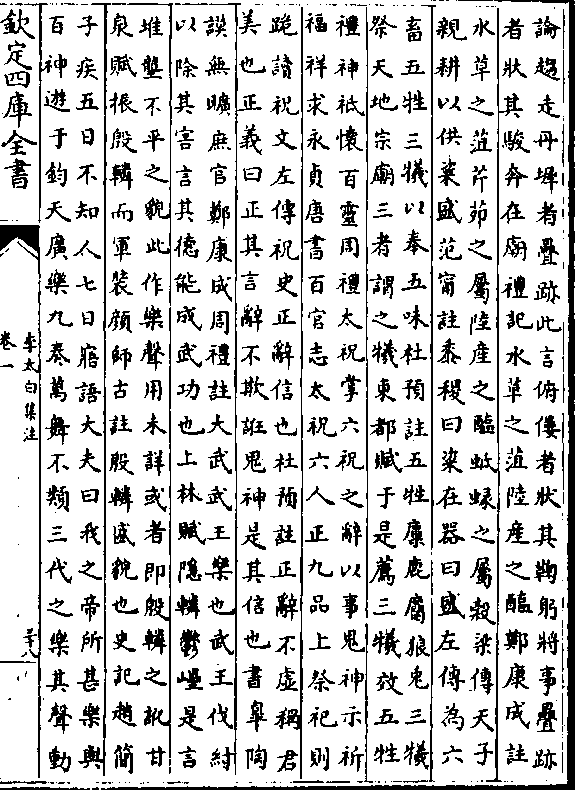 論趨走丹墀者疊跡此言俯僂者狀其鞠躬將事疊跡
者狀其駿奔在廟禮記水草之菹陸産之醢鄭康成註
水草之菹芹茆之屬陸産之醢蚳蝝之屬穀梁傳天子
親耕以供粢盛范甯註黍稷曰粢在器曰盛左傳為六
畜五牲三犧以奉五味杜預註五牲麋鹿麏狼兎三犧
祭天地宗廟三者謂之犧東都賦于是薦三犧效五牲
禮神祇懷百靈周禮太祝掌六祝之辭以事鬼神示祈
福祥求永貞唐書百官志太祝六人正九品上祭祀則
跪讀祝文左傳祝史正辭信也杜預註正辭不虛稱君
美也正義曰正其言辭不欺誑鬼神是其信也書皐陶
謨無曠庶官鄭康成周禮註大武武王樂也武王伐紂
以除其害言其德能成武功也上林賦隱轔鬱㠥是言
堆壟不平之貌此作樂聲用未詳或者即殷轔之訛甘
泉賦振殷轔而軍裝顔師古註殷轔盛貌也史記趙簡
子疾五日不知人七日寤語大夫曰我之帝所甚樂與
百神遊于鈞天廣樂九奏萬舞不類三代之樂其聲動
欽定四庫全書
李太白集注
卷一